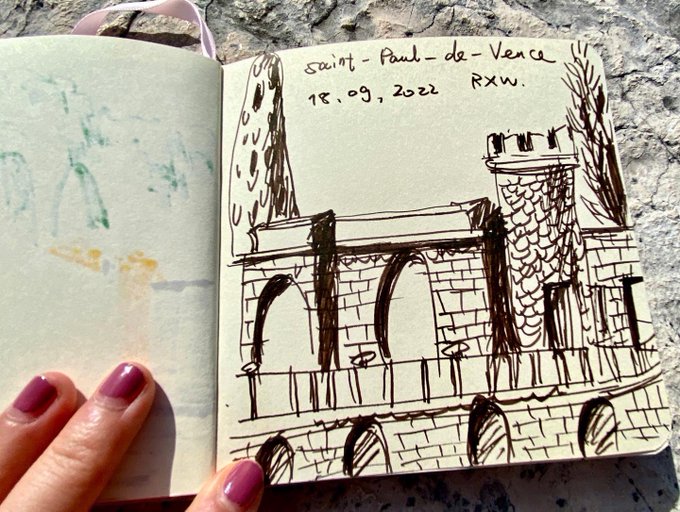 Saint-Paul-de-Vence
18.09,2022 RXW.